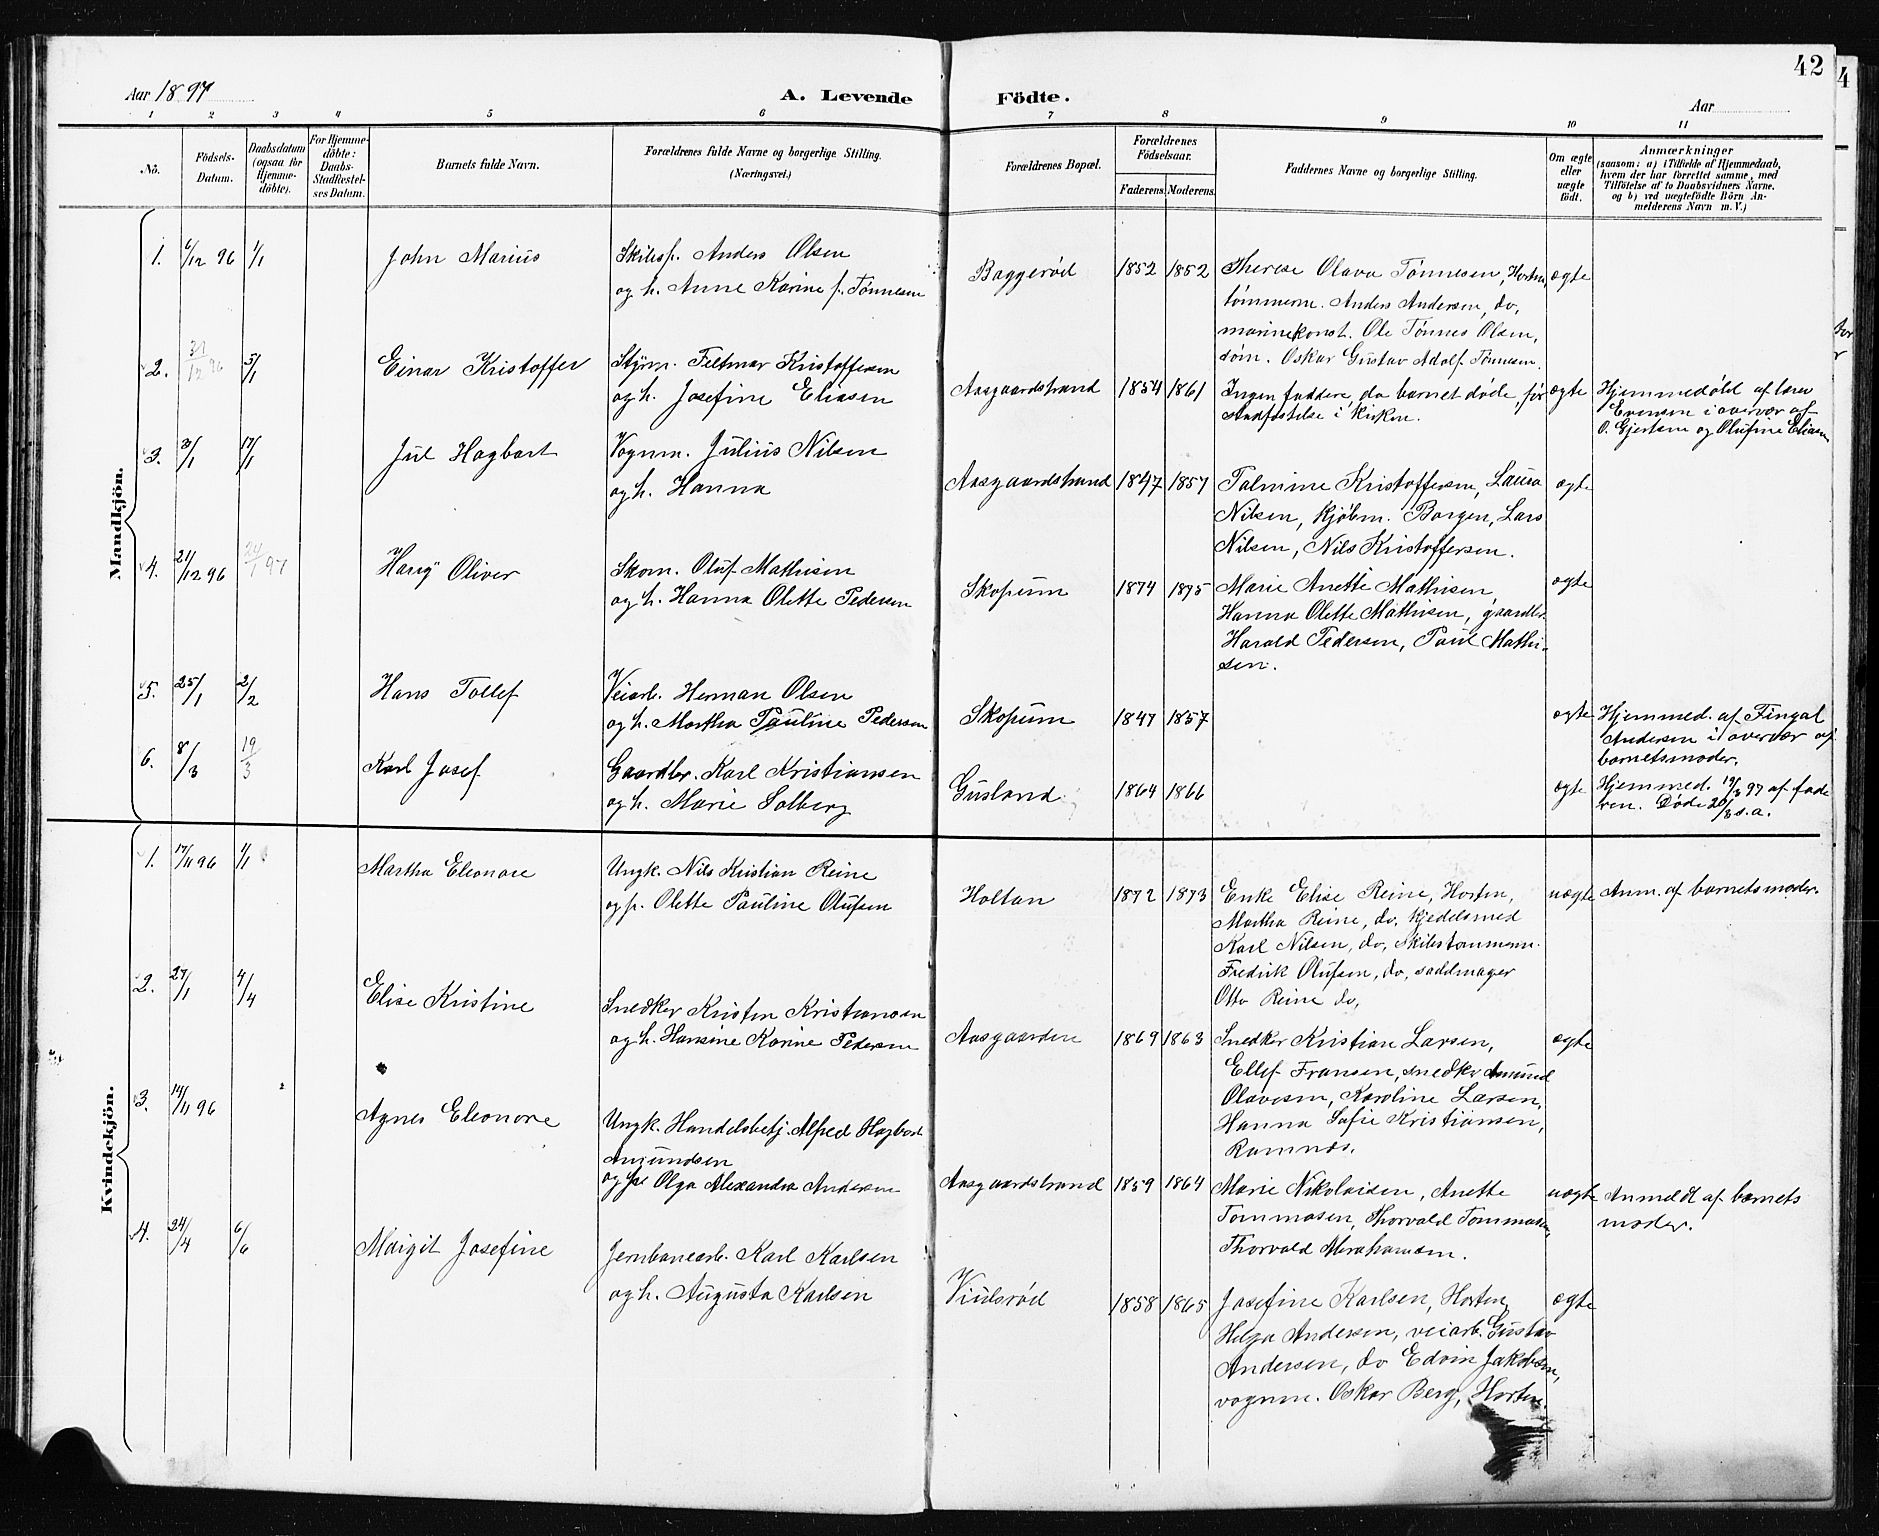 42
Aar 1897
A. Levende Födte.
Aar
1 2 3 4 5 6 7 8 9 10 11
No.
Födsels-Datum.
Daabsdatum (ogsaa för Hjemme-döbte).
For Hjemme-döbte: Daabs-Stadfæstel-ses Datum.
Barnets fulde Navn.
Forældrenes fulde Navne og borgerlige Stilling. (Næringsvei.)
Forældrenes Bopæl.
Forældrenes Födselsaar.
Faderens. Moderens.
Faddernes Navne og borgerlige Stilling.
Om ægte eller uægte födt.
Anmærkninger
(saasom: a) i Tilfælde af Hjemmedaab,
hvem der har forrettet samme, med
Tilföielse af to Daabsvidners Navne,
og b) ved uægtefödte Börn An-
melderens Navn m. V.)
Mandkjön.
1. 6/12 96 1/1 John Marius
Skibsf. Anders Olsen
og h. Anne Karine f. Tønnesen
Baggerød 1852 1852
Therese Olava Tønnesen, Horten,
tømmerm. Anders Andersen, do,
marinekonst. Ole Tønnes Olsen,
søm. Oskar Gustav Adolf Tønnesen.
ægte
2. 31/12 96 3/1 Einar Kristoffer
Styrm. Feltmar Kristoffersen
og h. Josefine Eliasen
Aasgaardstrand 1854 1861
Ingen faddere, da barnet døde før
stadfæstelse i kirken.
ægte
Hjemmedøbt af lærer
Evensen i overvær af
O. Gjertsen og Olufine Eliasen
3. 3/1 17/1 Jul Hagbart
Vognm. Julius Nilsen
og h. Hanna
Aasgaardstrand 1847 1857
Talmine Kristoffersen, Laura
Nilsen, kjøbm. Borgen, Lars
Nilsen, Nils Kristoffersen.
ægte
4. 21/12 96 24/1 97 Harry Oliver
Skom. Oluf Mathisen
og h. Hanna Olette Pedersen
Skopum 1874 1875
Marie Anette Mathisen,
Hanna Olette Mathisen, gaardbr.
Harald Pedersen, Paul Mathi-
sen.
ægte
5. 25/1 2/2 Hans Tollef
Veiarb. Herman Olsen
og h. Martha Pauline Pedersen
Skopum 1847 1857
ægte
Hjemmed. af Fingal
Andersen i overvær af
barnetsmoder.
6. 8/3 19/3 Karl Josef
Gaardbr. Karl Kristiansen
og h. Marie Solberg
Gusland 1864 1866
ægte
Hjemmed. 19/3 97 af fade
ren. Døde 20/3 s.a.
Kvindekjön.
1. 17/11 96 1/1 Martha Eleonore
Ungk. Nils Kristian Reine
og p. Olette Pauline Olufsen
Holtan 1872 1873
Enke Elise Reine, Horten,
Martha Reine, do, kjedelsmed
Karl Nilsen, do, skibstømmerm.
Fredrik Olufsen, do, sadelmager
Otto Reine do,
uægte
Anm. af barnets moder.
2. 27/1 4/4 Elise Kristine
Snedker Kristen Kristiansen
og h. Hansine Karine Pedersen
Aasgaarden 1869 1863
Snedker Kristian Larsen,
Ellef Fransen, snedker Amund
Olavesen, Karoline Larsen,
Hanna Sofie Kristiansen,
Ramnæs.
ægte
3. 14/11 96 Agnes Eleonore
Ungk. Handelsbetj. Alfred Hagbart
Amundsen
og pe Olga Alexandra Andersen
Aasgaardstrand 1859 1864
Marie Nikolaisen, Anette
Tommasen, Thorvald Tommasen,
Thorvald Abrahamsen.
uægte
Anmeldt af barnets
moder.
4. 24/4 6/6 Margit Josefine
Jernbanearb. Karl Karlsen
og h. Augusta Karlsen
Viulsrød 1858 1865
Josefine Karlsen, Horten,
Helga Andersen, veiarb. Gustav
Andersen, do Edvin Jakobsen,
vognm. Oskar Berg, Horten.
ægte